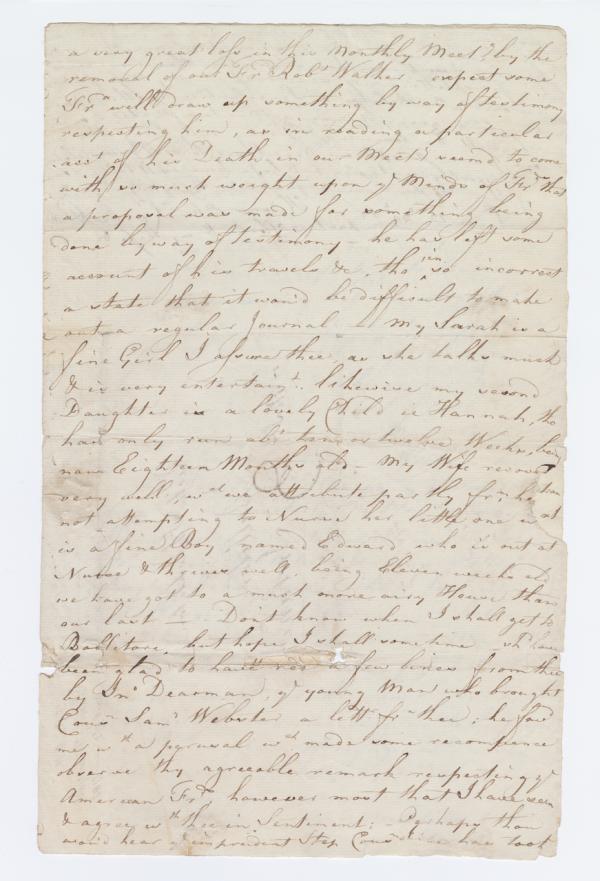 a very great loss in this Monthly Meetg by the
removal of our Fr Robt Walker expect some
Frs will draw up something by way of testimony
respecting him, as in reading a particular
acct of his Death in our Meetg seemd to come
with so much weight upon ye Minds of Frds that
a proposal was made for something being
done by way of testimony — he has left some
account of his travels &c, tho in so incorrect
a state that it woud be difficult to make
out a regular Journal — My Sarah is a
fine Girl I assure thee, as she talks much
& is very entertaing. likewise my second
Daughter is a lovely Child ie Hannah, tho
has only run abt ten or twelve Weeks, being
now Eighteen Months old — My Wife recover
very well, wch we attribute partly frm her
not attempting to Nurse her little one
is a fine Boy, named Edward who is out at
Nurse & thrives well, being Eleven weeks old
we have got to a much more airy House than
our last — Dont know when I shall get to
but hope I shall sometime shd have
been glad to have recd a few lines from thee
by Jno Dearman, ye young Man who brought
Cousn Saml Webster a lettr frm thee; he favd
me wth a perusal wch made some recompence
observe thy agreeable remark respecting ye
American Frds however most that I have seen
& agree wth thee in Sentiment; — Perhaps thou
woud hear of ye imprudent Step Cousn has took